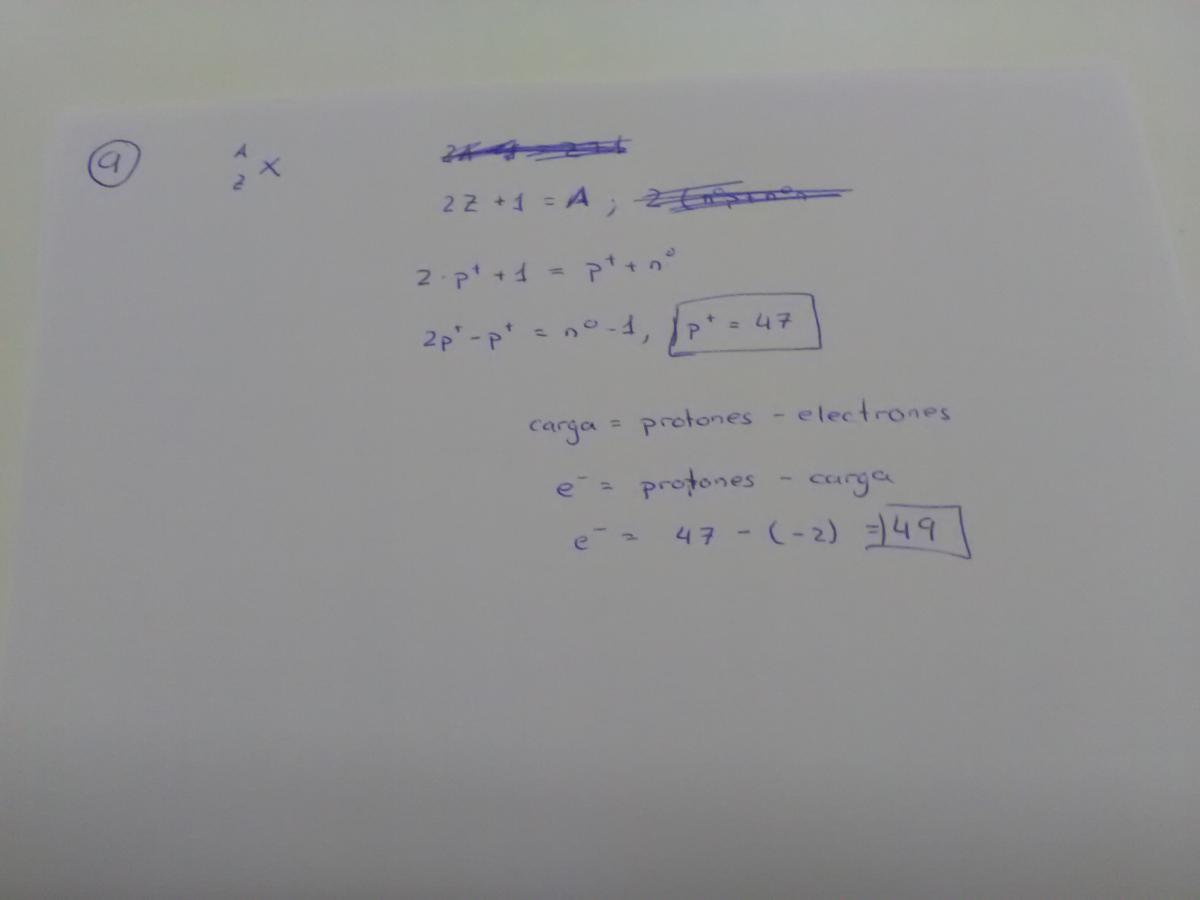 9 A
Z X
2Z + 1 = A ;
2 · p⁺ + 1 = p⁺ + n⁰
2p⁺ - p⁺ = n⁰ - 1, p⁺ = 47
carga = protones - electrones
e⁻ = protones - carga
e⁻ = 47 - (-2) = 49